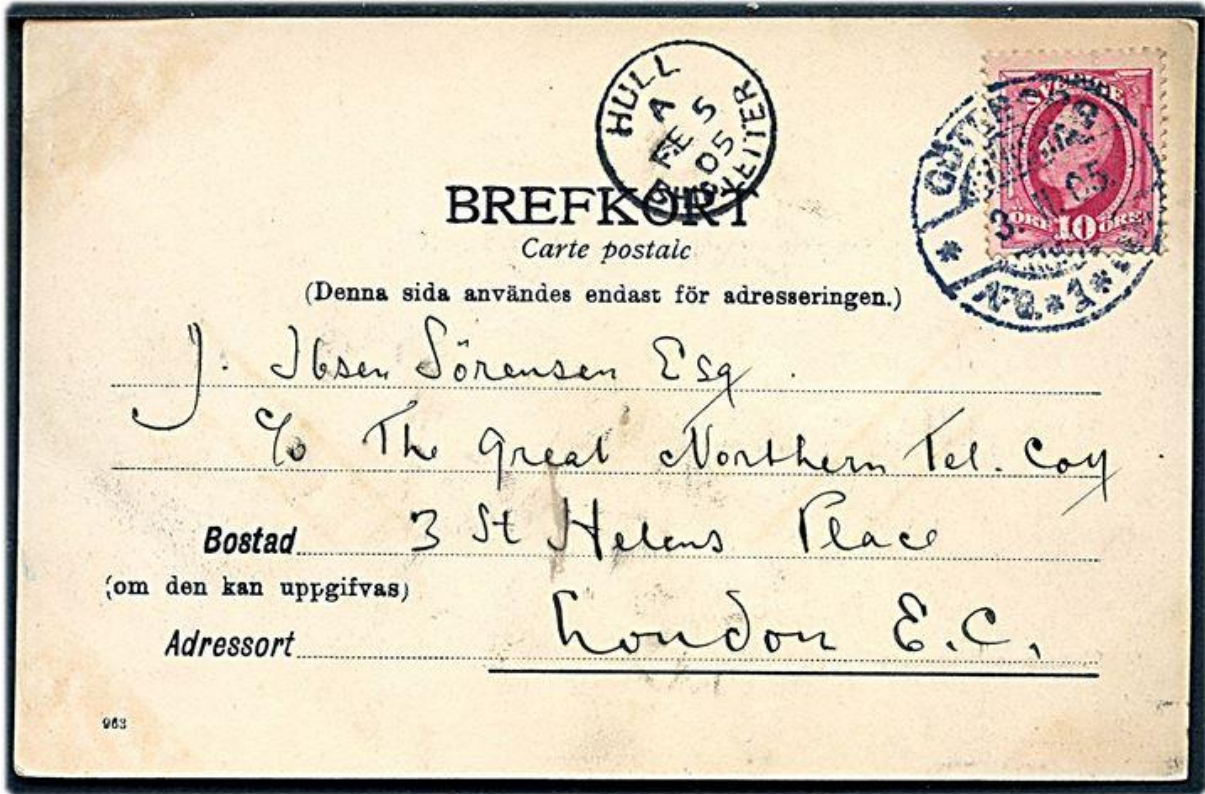 HULL
A
FE 5
05
SVERIGE
3. II. 05.
ÖRE 10 ÖRE
BREFKORT
Carte postale
(Denna sida användes endast för adresseringen.)
J. Ibsen Sörensen Esq.
c/o The Great Northern Tel. Coy
Bostad 3 St Helens Place
(om den kan uppgifvas)
Adressort London E.C.
963